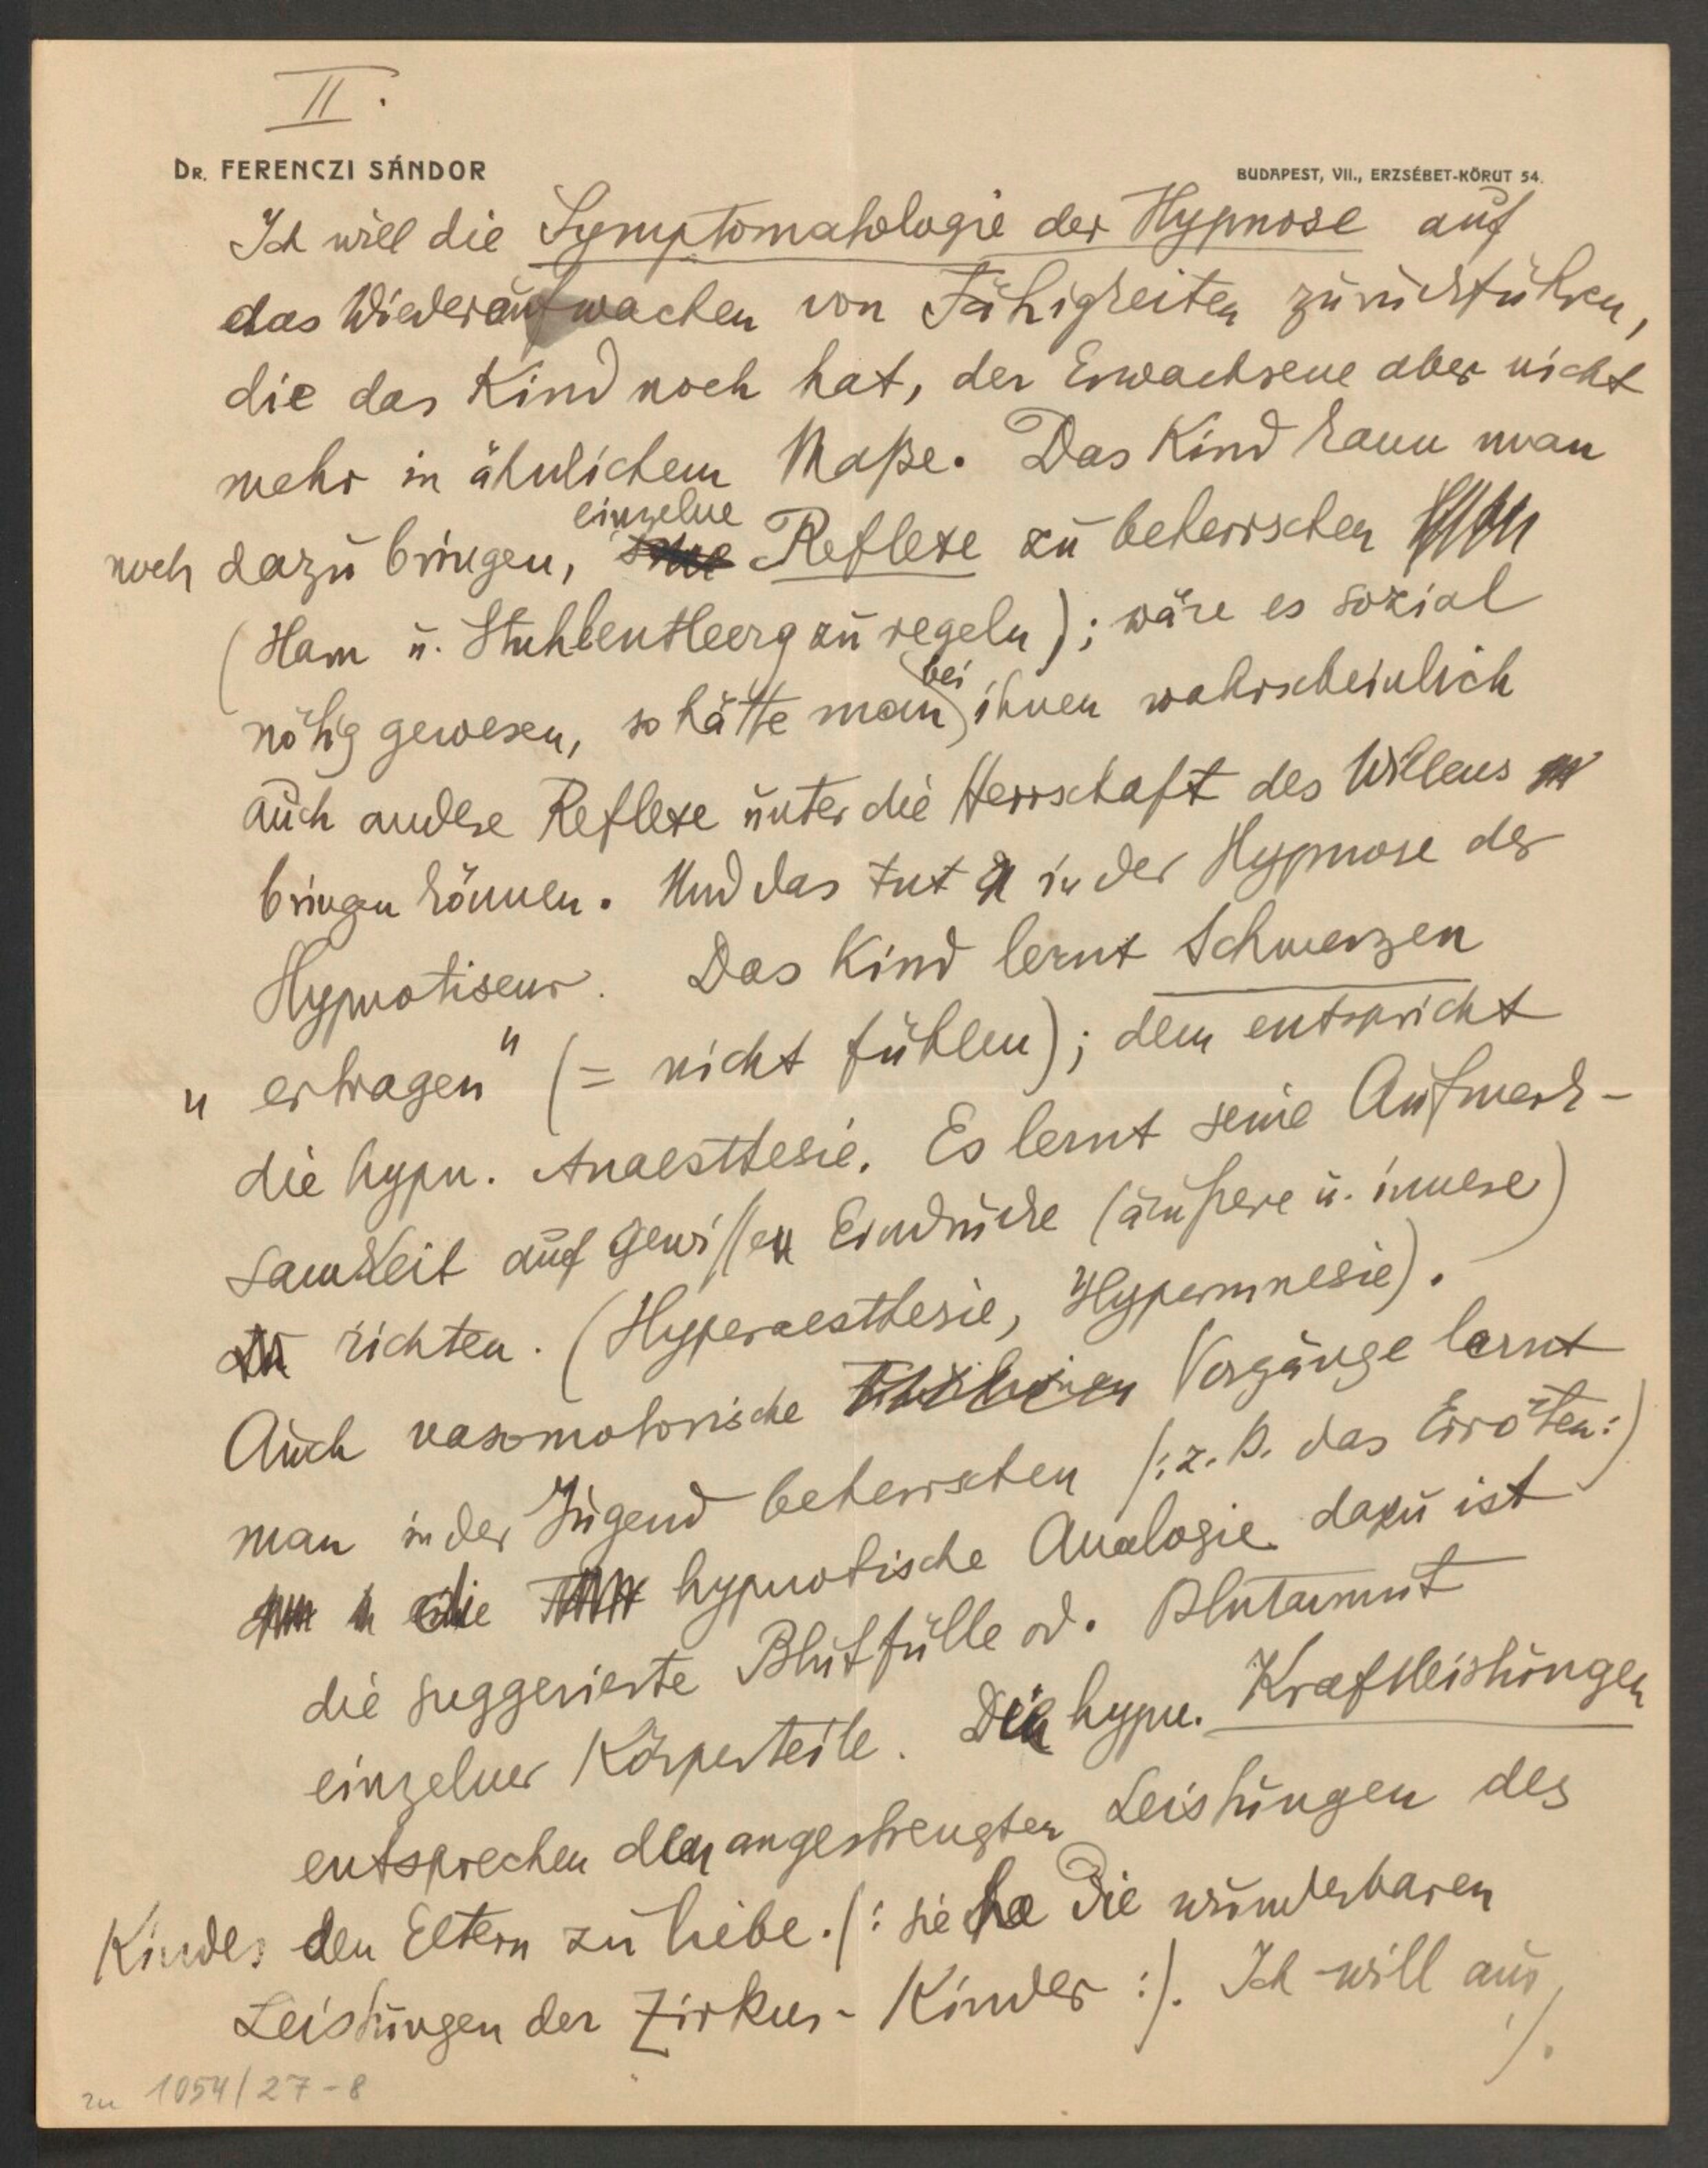 II.
DR. FERENCZI SÁNDOR
BUDAPEST, VII., ERZSÉBET-KÖRUT 54.
Ich will die Symptomatologie der Hypnose auf
das Wiederaufwachen von Fähigkeiten zurückführen,
die das Kind noch hat, der Erwachsene aber nicht
mehr in ähnlichem Maße. Das Kind kann man
einzelne
noch dazu bringen, Reflexe zu beherrschen
(Harn u. Stuhlentleerg zu regeln); wäre es sozial
nötig gewesen, so hätte man bei ihnen wahrscheinlich
auch andere Reflexe unter die Herrschaft des Willens
bringen können. Und das tut in der Hypnose der
Hypnotiseur. Das Kind lernt Schmerzen
„ertragen" (= nicht fühlen); dem entspricht
die hypn. Anaesthesie. Es lernt seine Aufmerk-
samkeit auf gewissen Eindrücke (äußere u. innere)
zu richten. (Hyperaesthesie, Hypermnesie).
Auch vasomotorische Vorgänge lernt
man in der Jugend beherrschen /:z.B. das Erröten:/
die hypnotische Analogie dazu ist
die suggerierte Blutfülle od. Blutarmut
einzelner Körperteile. Die hypn. Kraftleistungen
entsprechen den angestrengten Leistungen des
Kindes den Eltern zu liebe. /: siehe die wunderbaren
Leistungen der Zirkus-Kinder :/. Ich will aus
./.
zu 1054/27-8